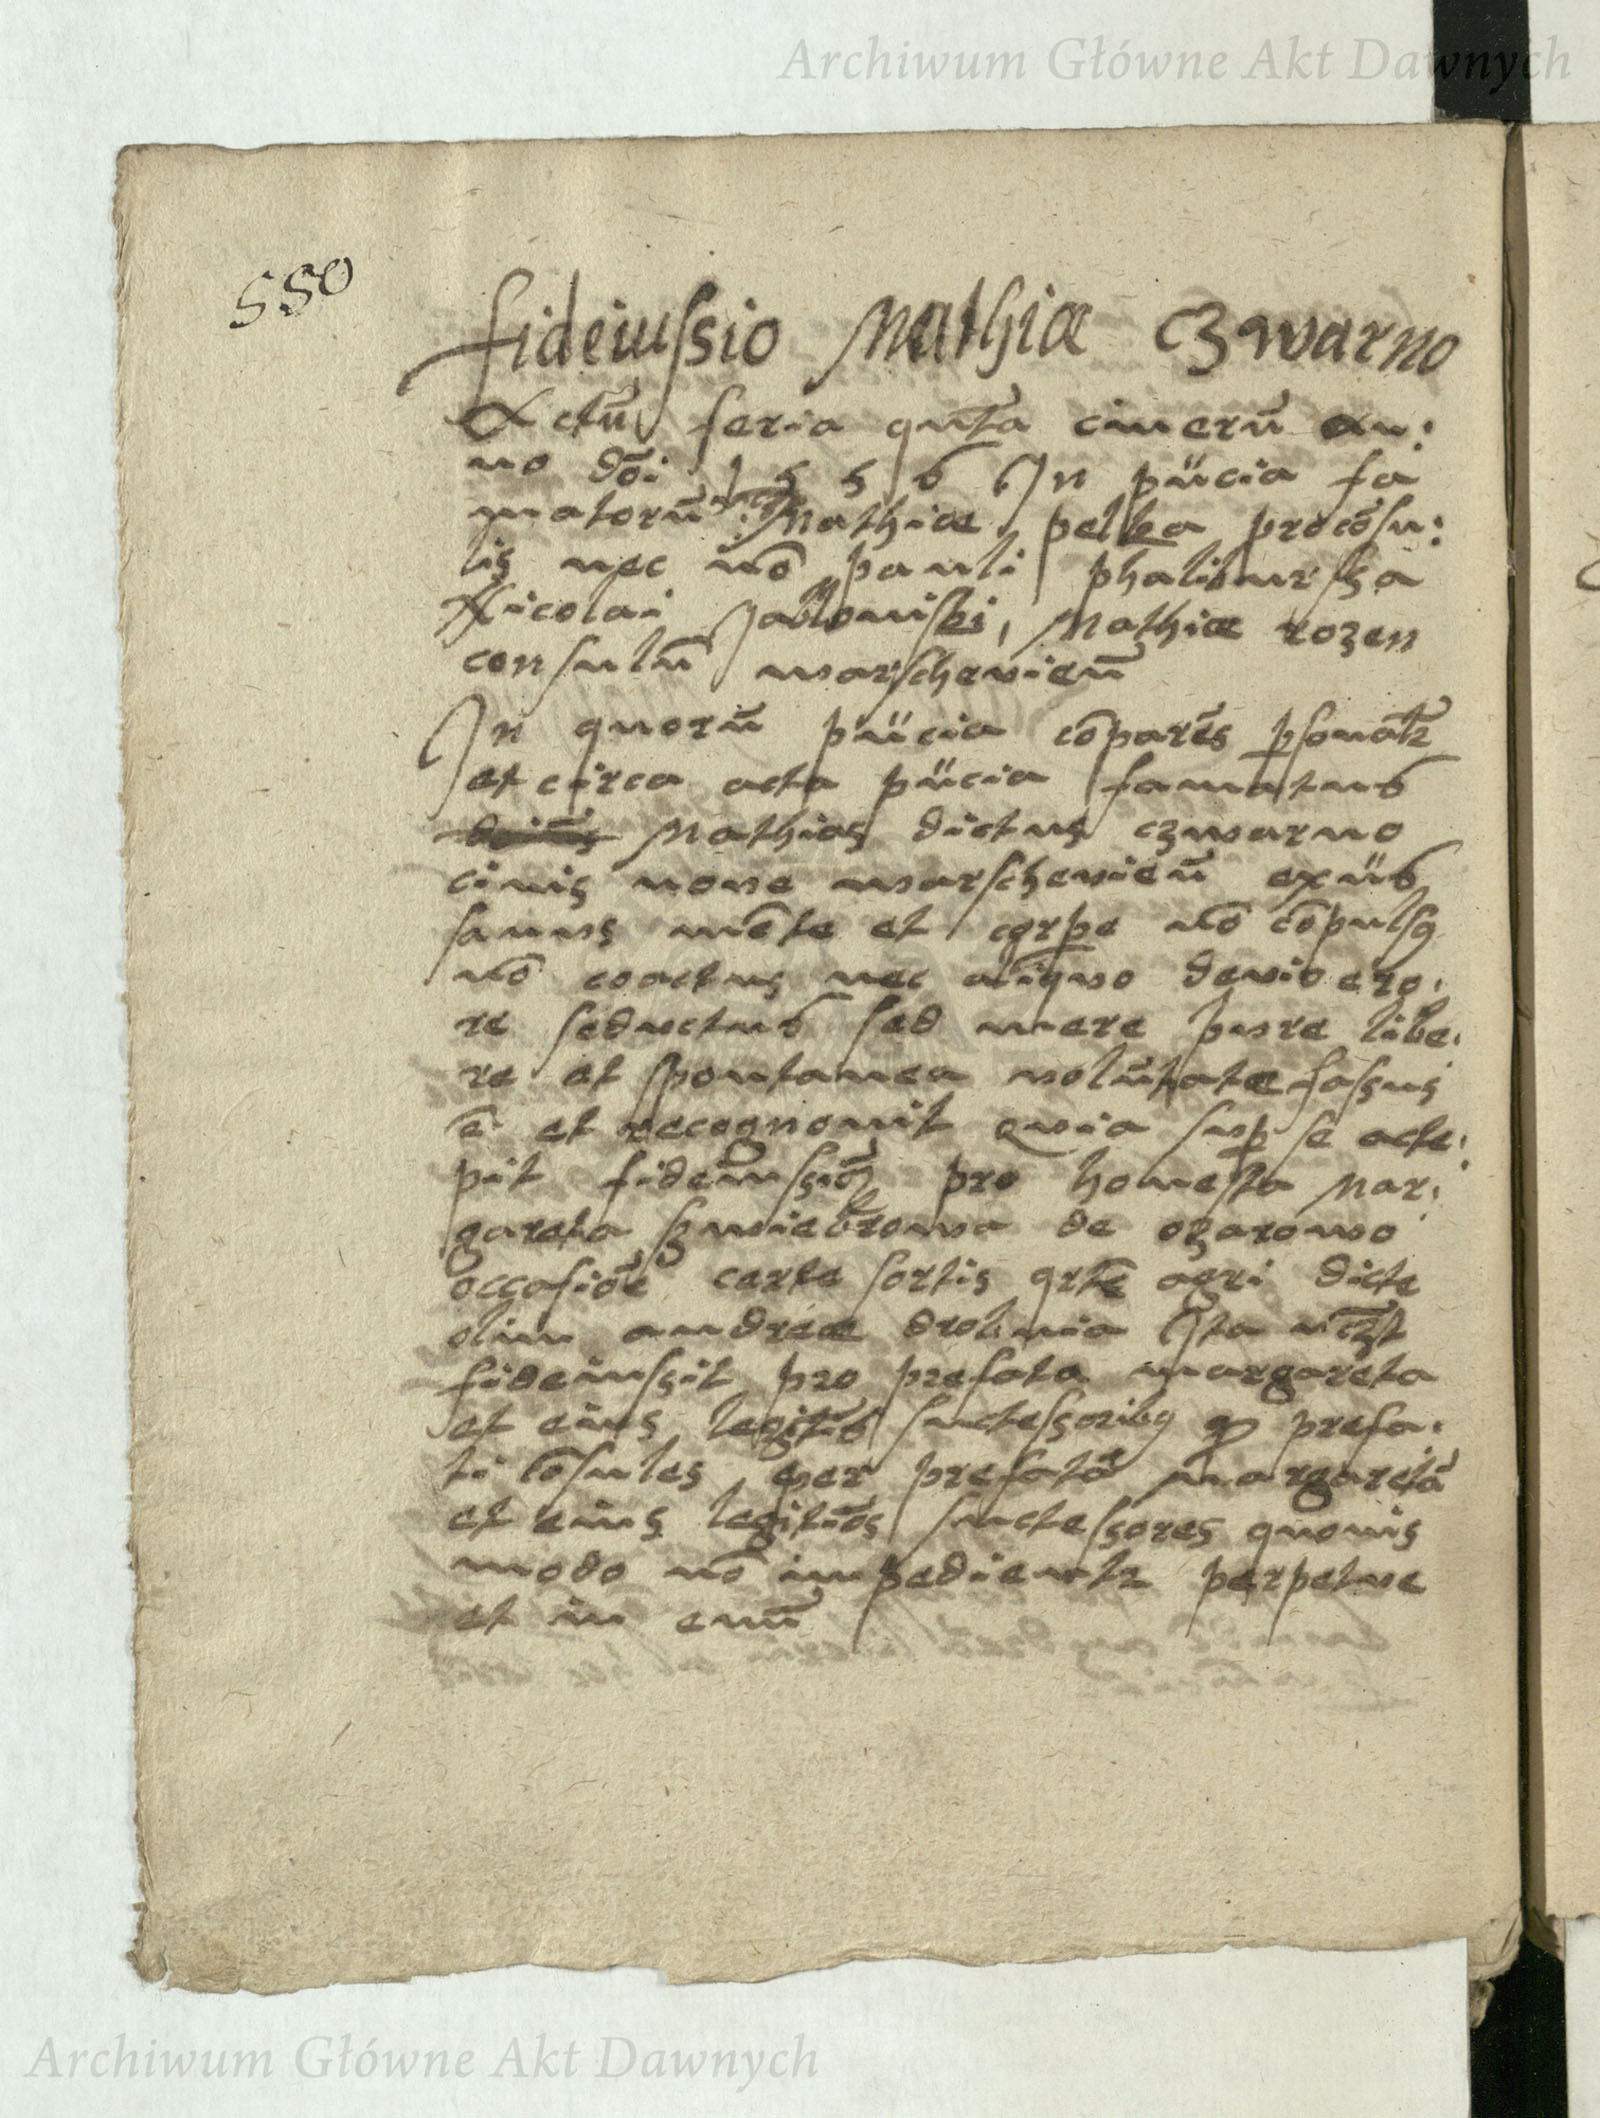 Archiwum Główne Akt Dawnych
550
fideiussio Mathiæ czwarno
Actu͂ feria qui͂ta cineru͂ an:
no do͂i 1556 In pn͂cia fa
matoru͂ Mathiæ pelka proco͂su:
lis nec no͂ pauli phaliburska
Nicolai Jabloniski, Mathiæ rozen
consulu͂ warschevieñ
In quoru͂ pn͂cia co͂pare͂s psonal͂r
et circa acta pn͂cia famatus
Mathias dictus czwarno
civis nove warschevieñ exn͂s
sanus me͂te et corpe no͂ co͂pulsq
no͂ coactus nec aliquo devio ero,
re seductus sed mere pure libe,
re et spontanea volu͂tate fassus
e͂ et recognovit quia sup se acce,
pit fideiussio͂ pro honesta Mar,
gareta de ozarowo
occasio͂e certe sortis qrte͂ agri dicte
olim andreæ Ita
fideiussit pro prefata margareta
et eius legiti͂s successoribq prefa,
ti co͂sules per prefata͂ margareta͂
et eius legiti͂os successores quovis
modo no͂ impedientr perpetue
et in evu͂
Archiwum Główne Akt Dawnych